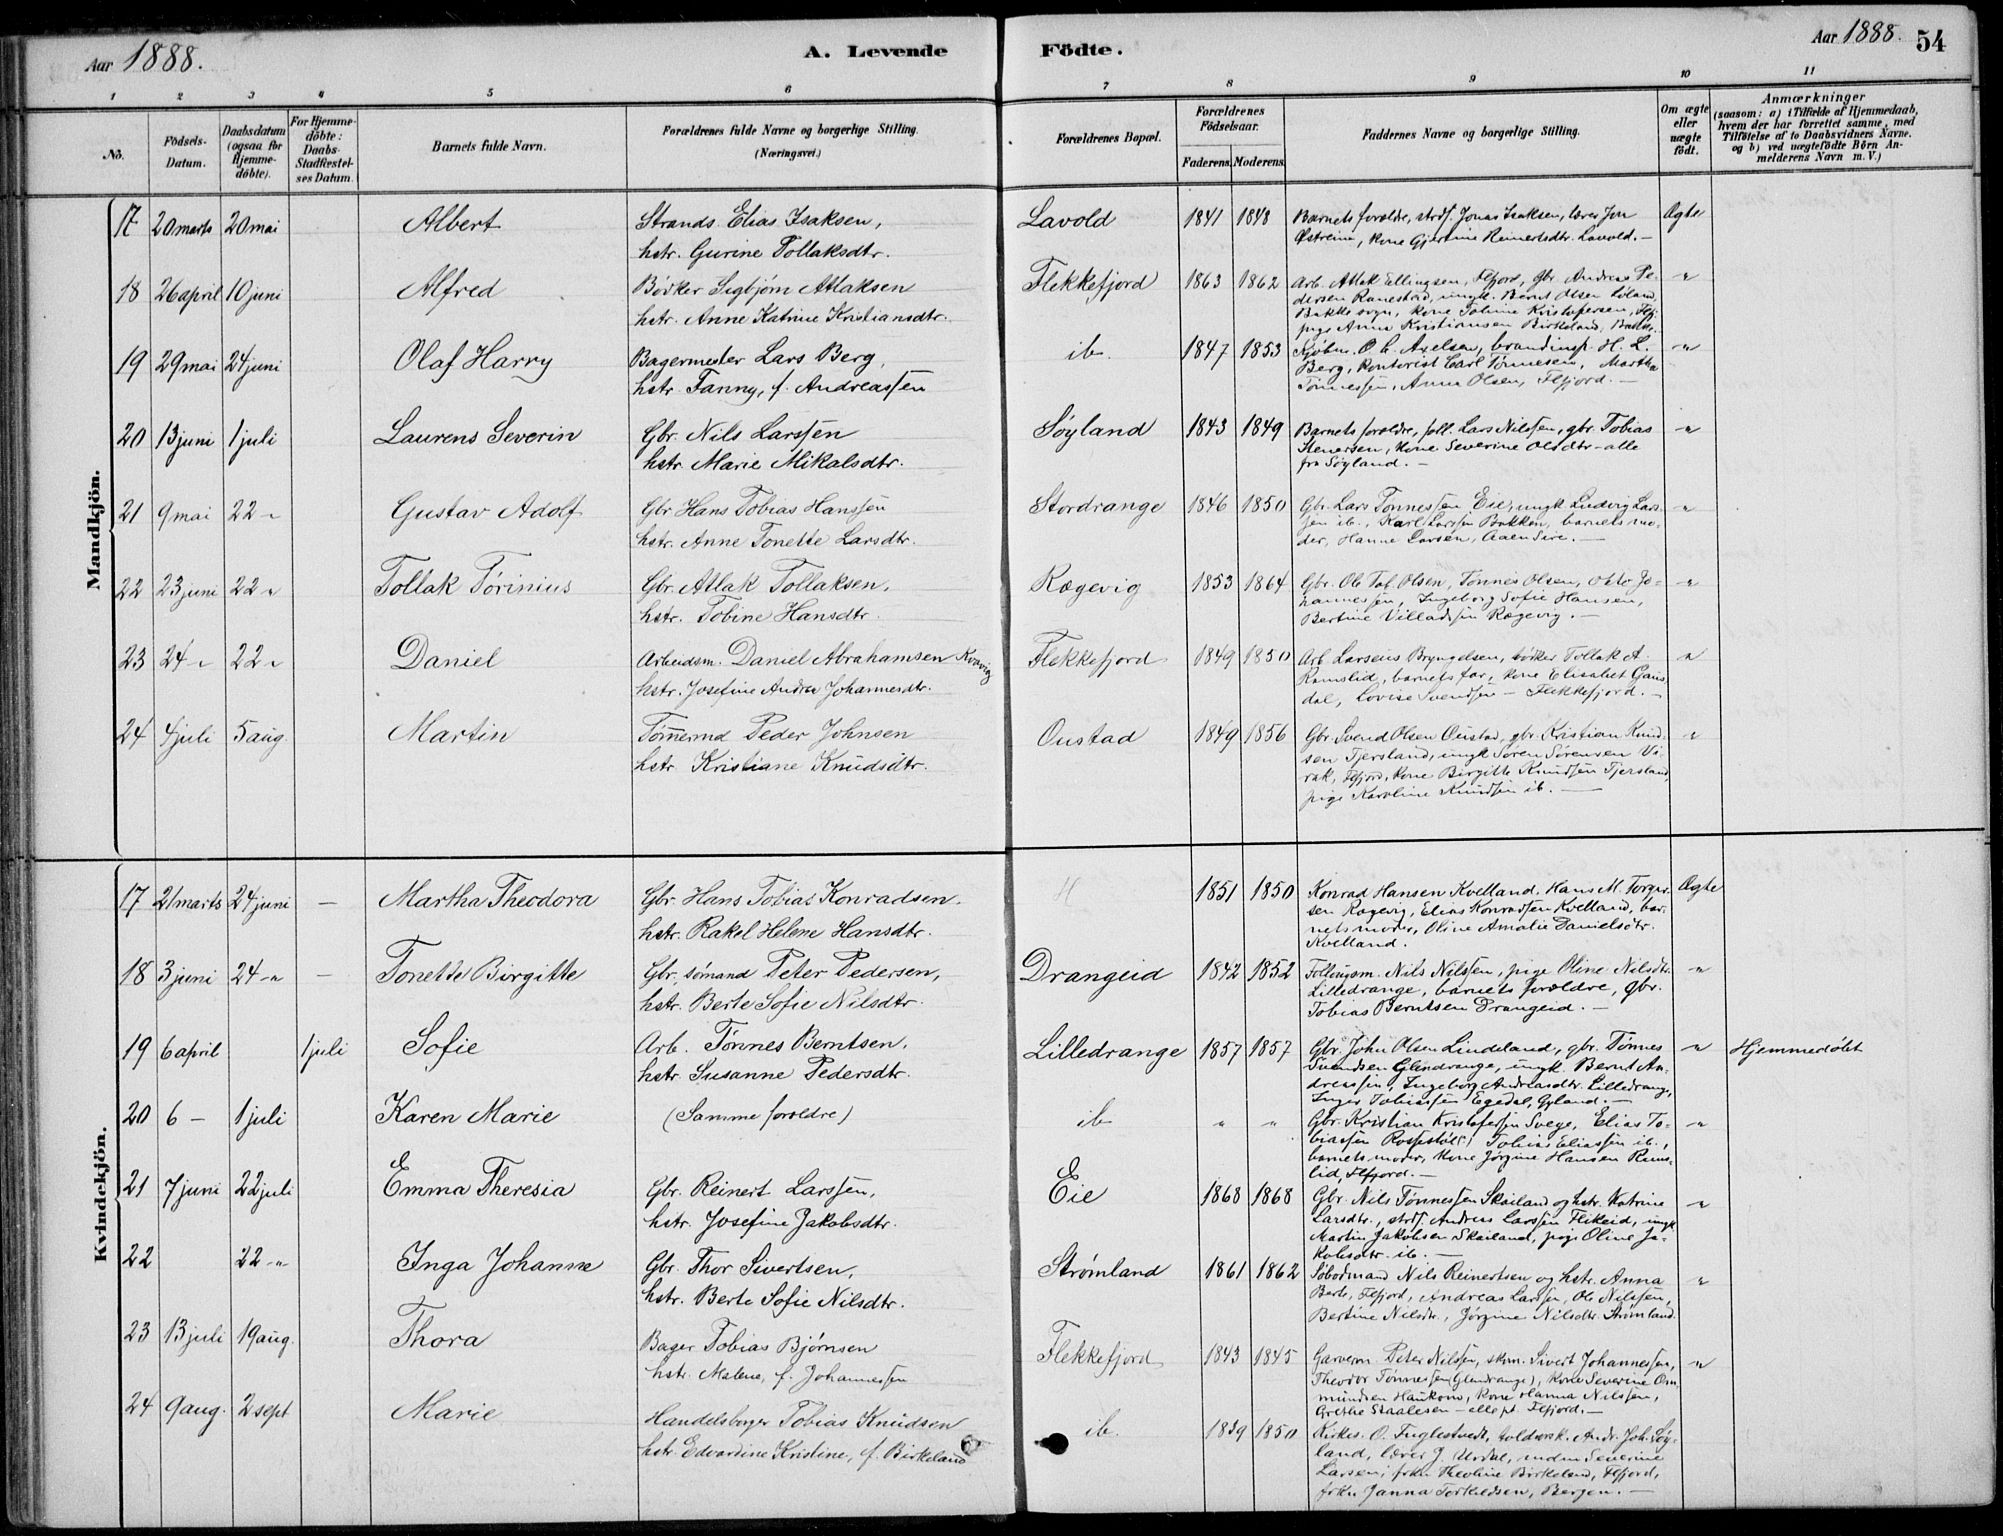 Aar 1888.
A. Levende
Födte.
Aar 1888.
54
1 2 3 4 5 6 7 8 9 10 11
No.
Födsels-Datum.
Daabsdatum (ogsaa for Hjemme-döbte).
For Hjemme-döbte: Daabs-Stadfæstel-ses Datum.
Barnets fulde Navn.
Forældrenes fulde Navne og borgerlige Stilling.
(Næringsvei.)
Forældrenes Bopæl.
Forældrenes Födselsaar.
Faderens. Moderens.
Faddernes Navne og borgerlige Stilling.
Om ægte eller uægte födt.
Anmærkninger
(saasom: a) i Tilfælde af Hjemmedaab, hvem der har forrettet samme, med Tilföielse af to Daabsvidners Navne. og b) ved uægtefödte Börn An-melderens Navn m. V.)
Mandkjön.
17 20 marts 20 mai Albert Strands. Elias Isaksen, Lavold 1841 1848 Barnets forældre, strdf. Jonas Isaksen, lærer Jon Ægte
hstr. Gurine Tollaksdtr. Østreim, kone Gjertine Reinertsdtr. Lavold. —
18 26 april 10 juni Alfred Bødker Sigbjørn Atlaksen Flekkefjord 1863 1862 Arb. Atlak Ellingsen, Flfjord, gbr. Andreas Pe- "
hstr. Anne Katrine Kristiansdtr. dersen Ranestad, ungk. Bernt Olsen Løland,
Bakke sogn, kone Tobine Kristofersen, Flfj.
pige Anna Kristiansen Birkeland, Bakke.
19 29 mai 24 juni Olaf Harry Bagermester Lars Berg, ib. 1847 1853 Kjøbm. O. C. Axelsen, brandinsp. H. L. "
hstr. Fanny, f. Andreassen Berg, kontorist Carl Tønnesen, Martha
Tønnessen, Anna Olsen, Flfjord. —
20 13 juni 1 juli Laurens Severin Gbr. Nils Larssen Søyland 1843 1849 Barnets forældre, foll. Lars Nilssen, gbr. Tobias "
hstr. Marie Mikalsdtr. Stenersen, kone Severine Olsdtr – alle
fra Søyland. —
21 9 mai 22 " Gustav Adolf Gbr Hans Tobias Hanssen Stordrange 1846 1850 Gbr. Lars Tønnessen Eie, ungk Ludvig Lars- "
hstr. Anne Tonette Larsdtr. sen ib., Karl Larssen Bakken, barnets mo-
der, Hanne Larsen, Aaensire. —
22 23 juni 22 " Tollak Tørinius Gbr. Atlak Tollaksen, Rægevig 1853 1864 Gbr. Ole Tof. Olsen, Tønnes Olsen, Otto Jo- "
hstr. Tobine Hansdtr. hannessen, Ingeborg Sofie Hansen,
Bertine Villadssen Rægevig. —
23 24 " 22 " Daniel Arbeidsm. Daniel Abrahamsen Kvavig Flekkefjord 1849 1850 Arb Larseus Bryngelsen, bødker Tollak A. "
hstr. Josefine Andrea Johannesdtr. Ramslid, barnets far, kone Elisabet Gaus-
dal, Lovise Svendsen – Flekkefjord. —
24 4 juli 5 aug. Martin Tømmermd Peder Johnsen Oustad 1849 1856 Gbr. Svend Olsen Oustad, gbr. Kristian Knud- "
hstr. Kristiane Knudsdtr. sen Tjersland, ungk Søren Sørensen Vi-
rak, Flfjord, kone Birgitte Knudsen Tjersland,
pige Karoline Knudsen ib. —
Kvindekjön.
17 21 marts 24 juni — Martha Theodora Gbr. Hans Tobias Konradsen. H 1851 1850 Konrad Hansen Kvelland. Hans M. Torger- Ægte
hstr. Rakel Helene Hansdtr. sen Rægevig, Elias Konradsen Kvelland, bar-
nets moder, Oline Amalie Danielsdtr.
Kvelland.
18 3 juni 24 – " — Tonette Birgitte Gbr., sømand Peter Pedersen, Drangeid 1842 1852 Follaugsm. Nils Nilssen, pige Oline Nilsdtr. "
hstr. Berte Sofie Nilsdtr. Lilledrange, barnets forældre, gbr.
Tobias Berntsen Drangeid. —
19 6 april 1 juli Sofie Arb. Tønnes Berntsen, Lilledrange 1857 1857 Gbr. John Olsen Lindeland, gbr. Tønnes " Hjemmedøbt
hstr. Susanne Pedersdtr. Svendsen Glendrange, ungk. Bernt An-
dreassen, Ingeborg Andreasdtr. Lilledrange,
Inger Tobiassen Egedal, Gyland. —
20 6 – 1 juli Karen Marie (Samme forældre) ib " " Gbr. Kristian Kristofersen Svege, Elias To- "
biassen Rossestøl, Tobias Eliassen ib.,
barnets moder, kone Jørgine Hansen Rams-
lid, Flfjord. —
21 7 juni 22 juli Emma Theresia Gbr. Reinert Larssen, Eie 1868 1868 Gbr. Nils Tønnessen Skailand og hstr. Katrine "
hstr. Josefine Jakobsdtr. Larsdtr., strdf. Andreas Larssen Flikeid, ungk
Martin Jakobsen Skailand, pige Oline Ja-
kobsdtr. ib. —
22 22 – " Inga Johanne Gbr. Thor Sivertsen, Strømland 1861 1862 Søbodmand Nils Reinertsen og hstr. Anna "
hstr. Berte Sofie Nilsdtr. Berte, Flfjord, Andreas Larssen, Ole Nilssen,
Bertine Nilsdtr., Jørgine Nilsdtr. Strømland.
23 13 juli 19 aug. Thora Bager Tobias Bjørnsen Flekkefjord 1843 1845 Garverm. Peter Nilssen, skom. Sivert Johannessen, "
hstr. Malene, f. Johannessen Theodor Tønnessen (Glendrange), kone Severine Om-
mundsen Haukom, kone Hanna Nilssen,
Grethe Staalesen – alle pt. Flfjord. —
24 9 aug. 2 sept Marie Handelsborger Tobias Knudsen ib. 1839 1850 Kirkes. O. Fuglestvedt, toldorsk. Andr. Joh. Søy-
hstr. Edvardine Kristine, f. Birkeland land, lærer J. Urdal, madm Severine
Larsen, frkn Theoline Birkeland, Flfjord,
frkn Janna Terkildsen, Bergen. —